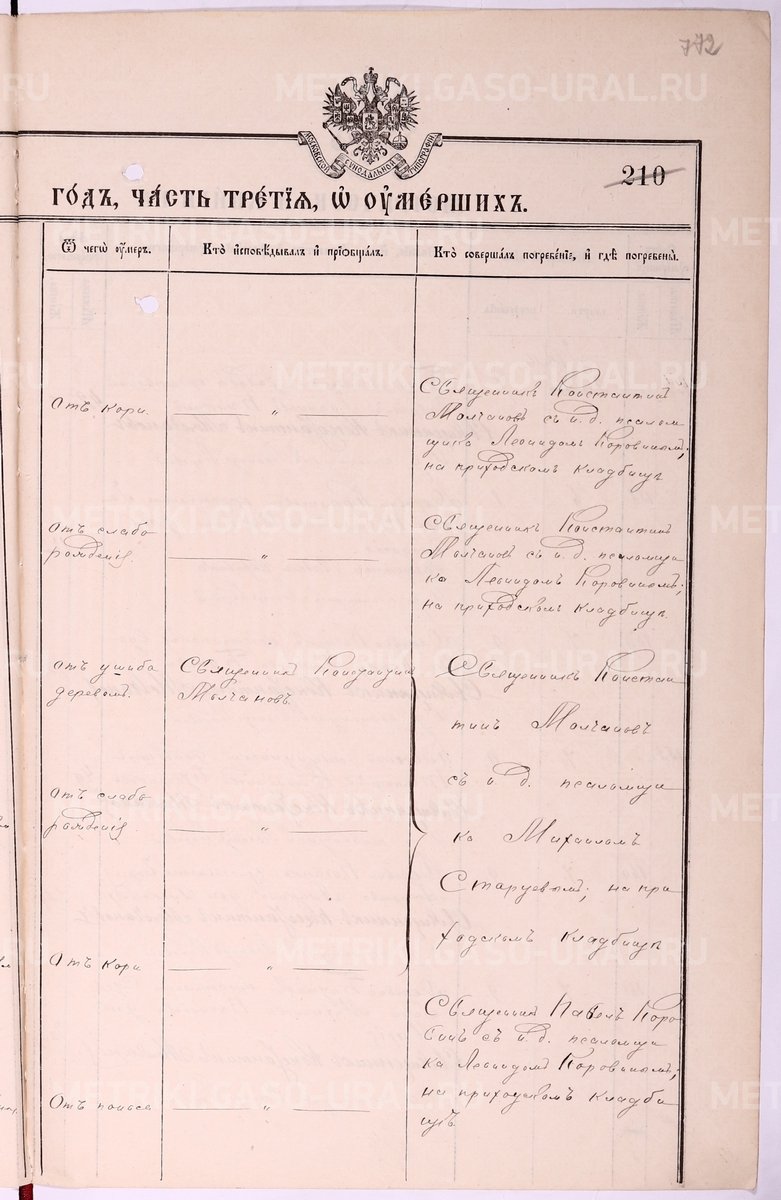 772
METRIKI.GASO-URAL.RU
МОСКОВСКОЙ СѴНОДАЛЬНОЙ ТИПОГРАФІИ
210
ГОДЪ, ЧАСТЬ ТРЕТІЯ, Ѡ ОУМЕРШИХЪ.
Ѿ чегѡ оумеръ.
Кто исповѣдывалъ и пріобщалъ.
Кто совершалъ погребеніе, и гдѣ погребены.
Отъ кори.
— " —
Священникъ Константинъ
Молчановъ съ и. д. псалом
щика Леонидомъ Коровинымъ;
на приходскомъ кладбищѣ
Отъ слабо
рожденія.
— " —
Священникъ Константинъ
Молчановъ съ и. д. псаломщи
ка Леонидомъ Коровинымъ;
на приходскомъ кладбищѣ.
Отъ ушиба
деревомъ.
Священникъ Константинъ
Молчановъ.
Священникъ Констан
тинъ Молчановъ
съ и. д. псаломщи
ка Михаиломъ
Старцевымъ; на при
ходскомъ кладбищѣ
Отъ слабо
рожденія
— " —
Отъ кори
— " —
Священникъ Павелъ Коро
винъ съ и. д. псаломщи
ка Леонидомъ Коровинымъ;
на приходскомъ кладби
щѣ
Отъ поноса
— " —